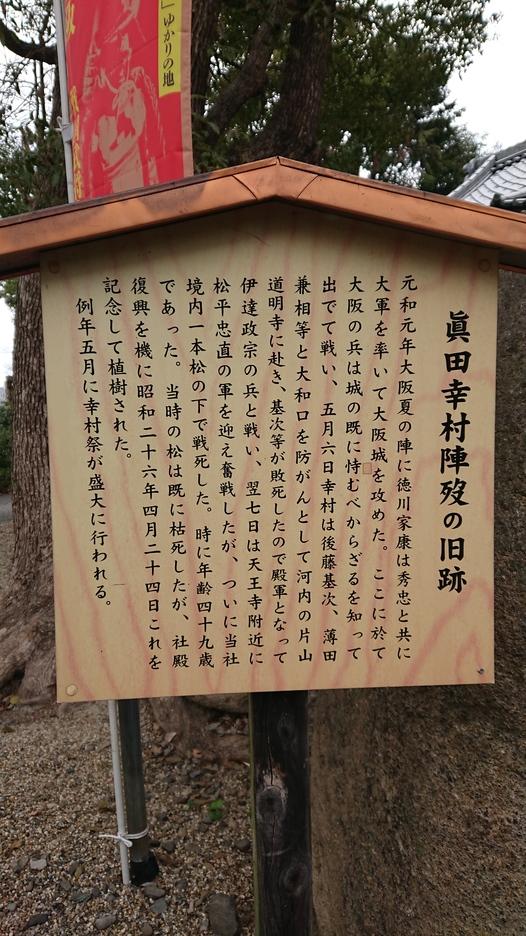 ゆかりの地
眞田幸村陣歿の旧跡
元和元年大阪夏の陣に徳川家康は秀忠と共に
大軍を率いて大阪城を攻めた。ここに於て
大阪の兵は城の既に恃むべからざるを知って
出でて戦い、五月六日幸村は後藤基次、薄田
兼相等と大和口を防がんとして河内の片山
道明寺に赴き、基次等が敗死したので殿軍となって
伊達政宗の兵と戦い、翌七日は天王寺附近に
松平忠直の軍を迎え奮戦したが、ついに当社
境内一本松の下で戦死した。時に年齢四十九歳
であった。当時の松は既に枯死したが、社殿
復興を機に昭和二十六年四月二十四日これを
記念して植樹された。
例年五月に幸村祭が盛大に行われる。